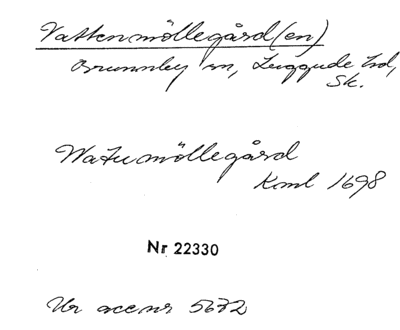 Vattenmöllegård(en)
Brunnby sn, Luggude hd,
Sk.
Watumöllegård
Koml 1698
Nr 22330
Ur acc nr 5672